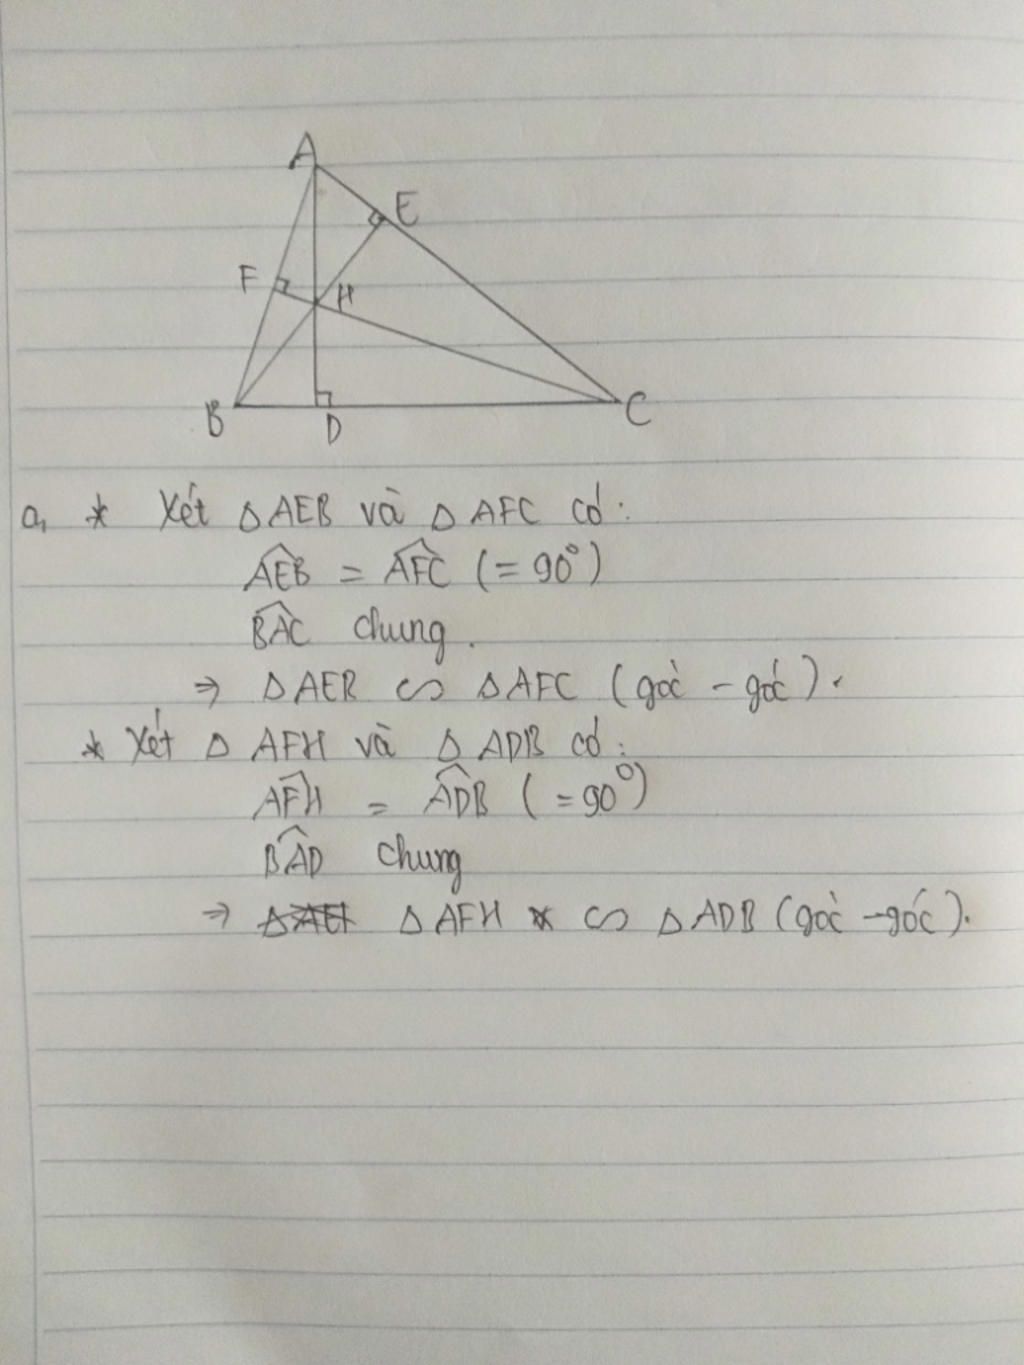 A
E
F
H
B
D
C
a, * Xét △AEB và △AFC có:
\widehat{AEB} = \widehat{AFC} (= 90°)
\widehat{BAC} chung.
⇒ △AEB ∽ △AFC (góc - góc).
* Xét △AFH và △ADB có:
\widehat{AFH} = \widehat{ADB} (= 90°)
\widehat{BAD} chung
⇒ △AFH ∽ △ADB (góc - góc).